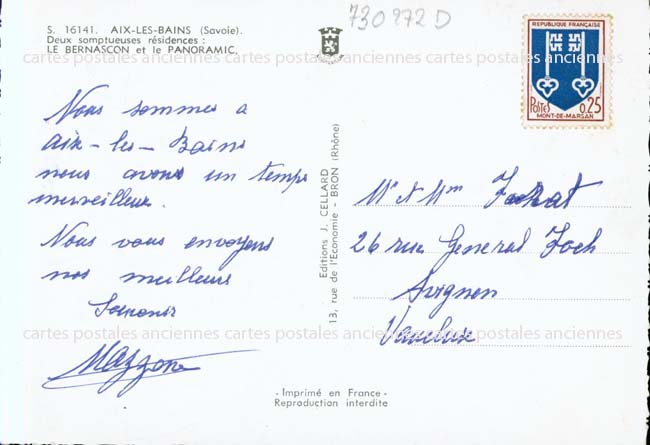 S. 16141. AIX-LES-BAINS (Savoie).
Deux somptueuses résidences :
LE BERNASCON et le PANORAMIC.
730972D
RÉPUBLIQUE FRANÇAISE
POSTES 0,25
MONT-DE-MARSAN
cartes postales anciennes cartes postales anciennes cartes postales anciennes
Nous sommes a
Aix-les-Bains
nous avons un temps
merveilleux.
Nous vous envoyons
nos meilleurs
Souvenirs
Mazzone
Editions J. CELLARD
13, rue de l'Economie - BRON (Rhône)
Mr et Mm
26 rue General Foch
Avignon
Vaucluse
cartes postales anciennes cartes postales anciennes cartes postales anciennes
- Imprimé en France -
Reproduction interdite